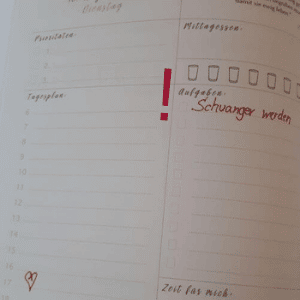 Dienstag
Prioritäten:
1.
2.
3.
Mittagessen:
Tagesplan:
6
7
8
9
10
11
12
13
14
15
16
17
!
Aufgaben:
Schwanger werden
Zeit für mich: